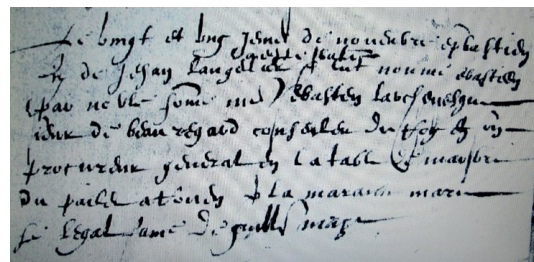 Le vingt et ung jour de novembre Sebastien
filz de Jehan Langelier fut nommé Sebastien
par noble home me Sebastien Larchevesque
sieur de beauregard conseiller du Roy et son
procureur general en la table de marbre
du pallais a Rouen la marraine marie
le legal fame de guille